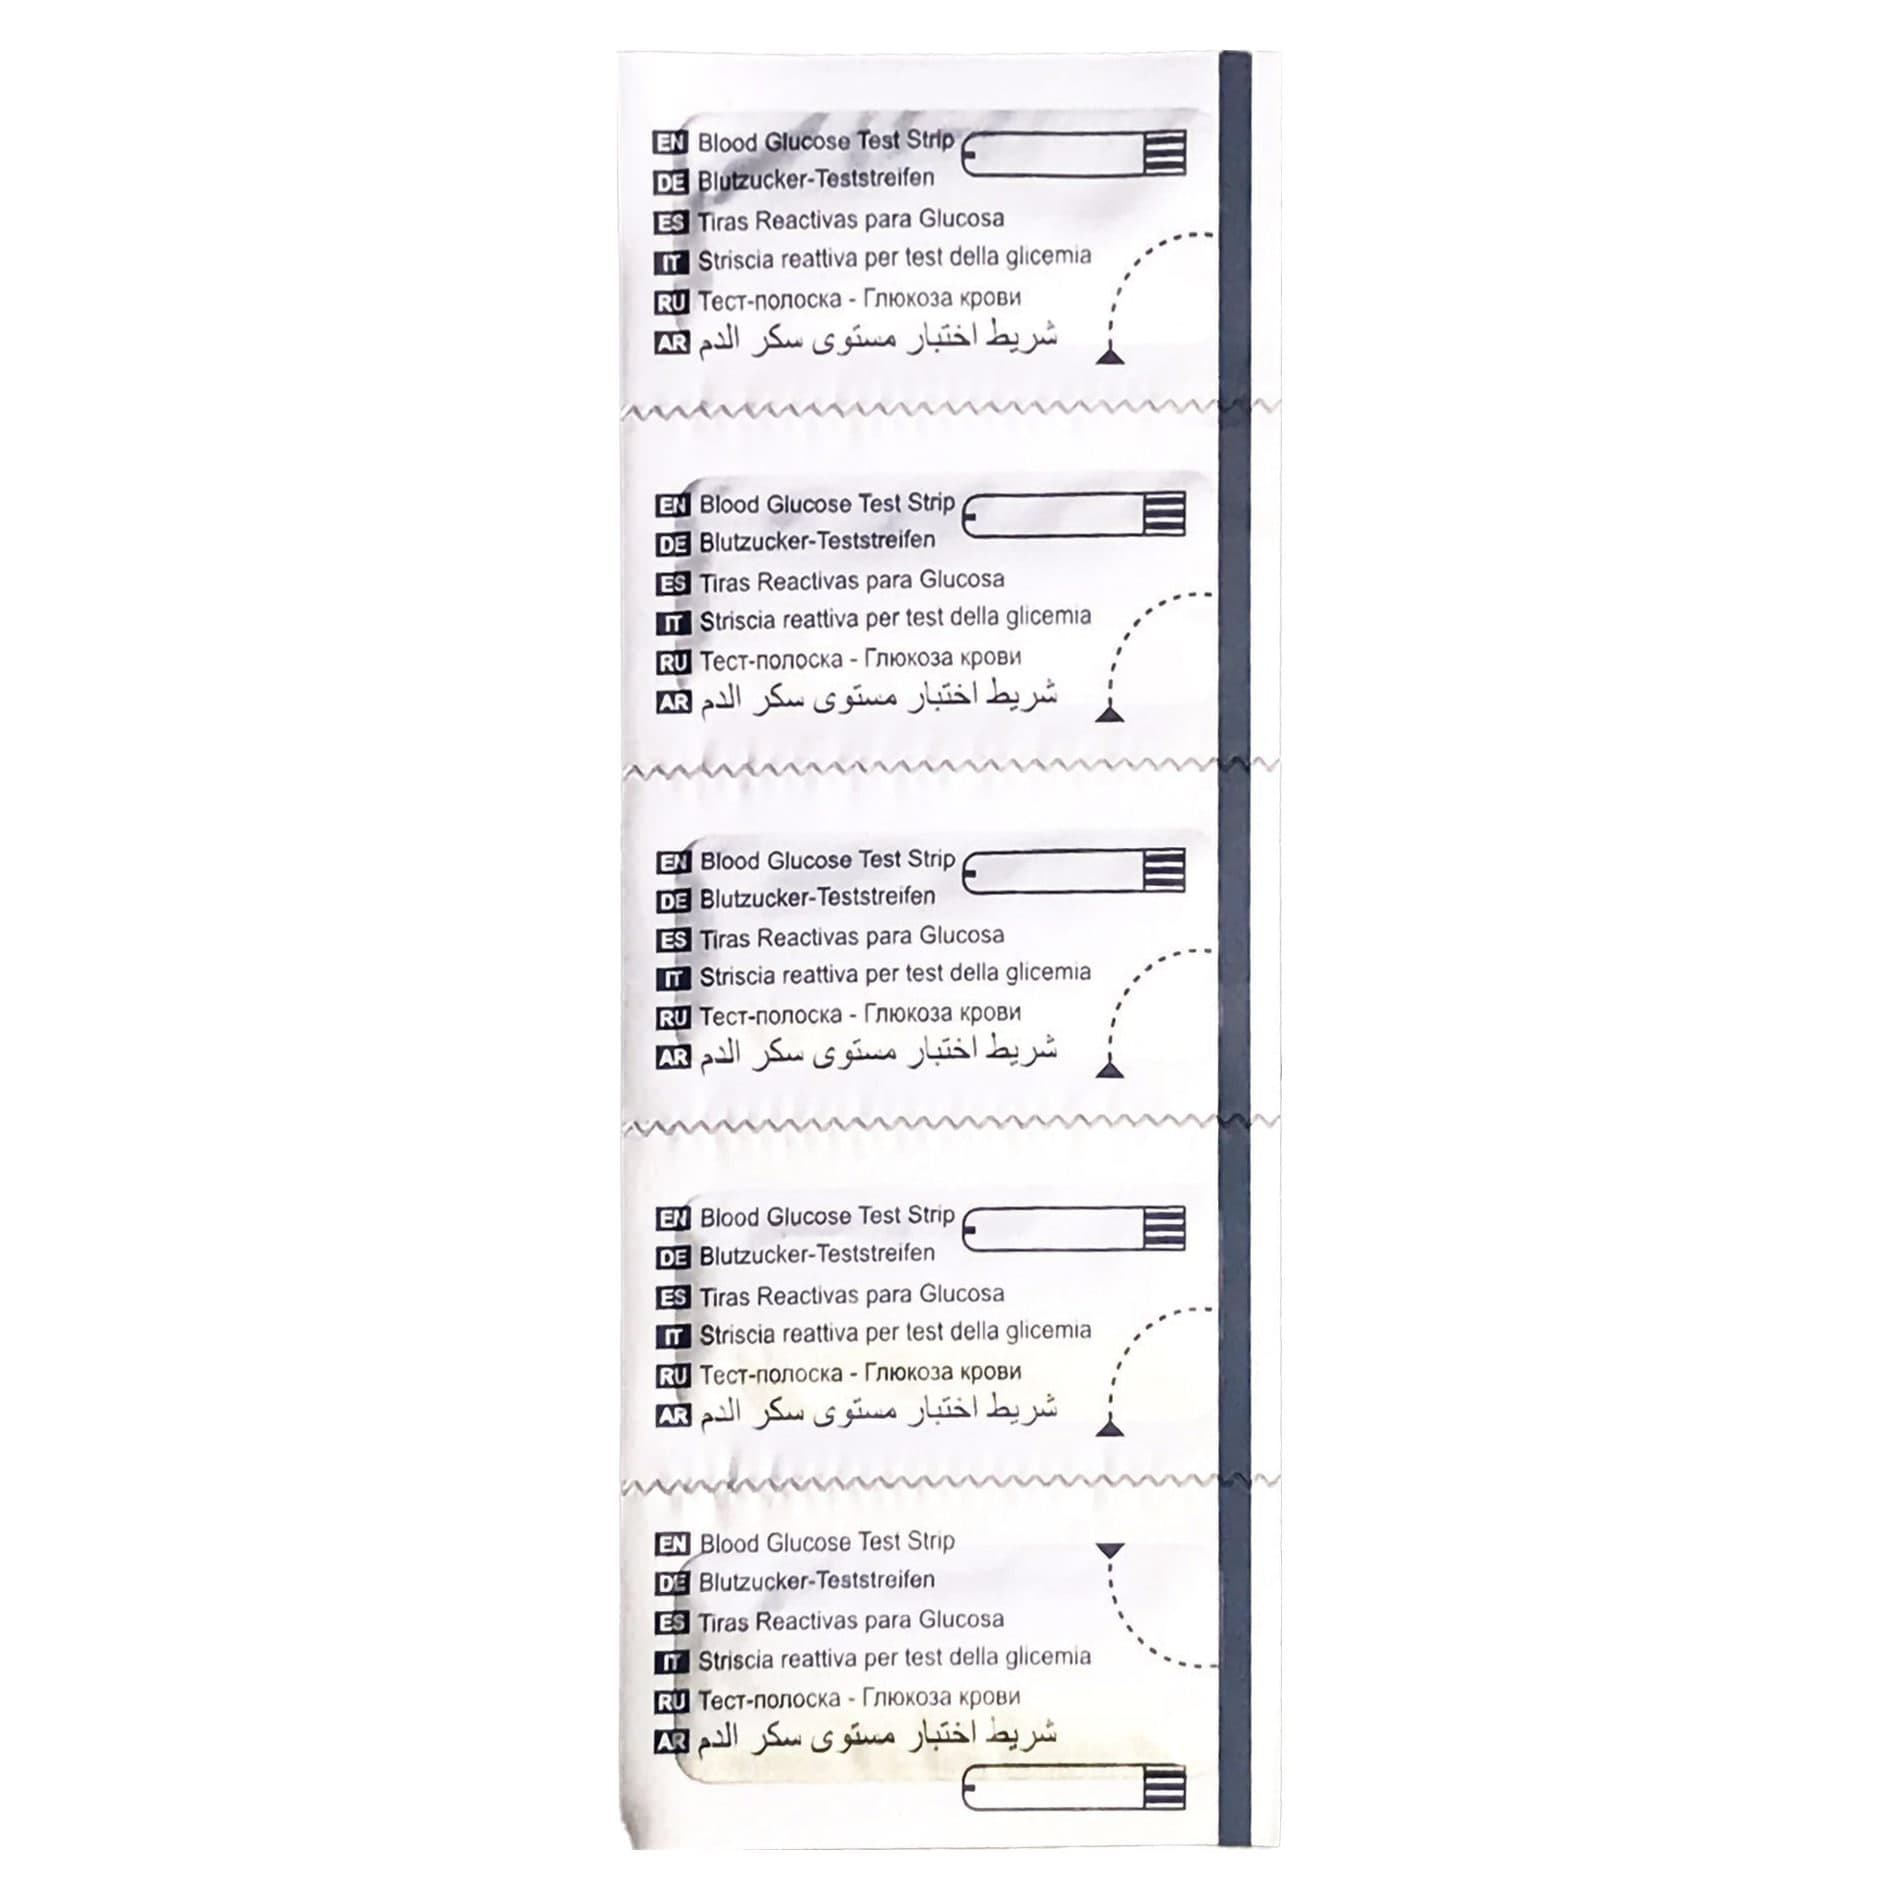 EN Blood Glucose Test Strip
DE Blutzucker-Teststreifen
ES Tiras Reactivas para Glucosa
IT Striscia reattiva per test della glicemia
RU Тест-полоска - Глюкоза крови
AR شريط اختبار مستوى سكر الدم
EN Blood Glucose Test Strip
DE Blutzucker-Teststreifen
ES Tiras Reactivas para Glucosa
IT Striscia reattiva per test della glicemia
RU Тест-полоска - Глюкоза крови
AR شريط اختبار مستوى سكر الدم
EN Blood Glucose Test Strip
DE Blutzucker-Teststreifen
ES Tiras Reactivas para Glucosa
IT Striscia reattiva per test della glicemia
RU Тест-полоска - Глюкоза крови
AR شريط اختبار مستوى سكر الدم
EN Blood Glucose Test Strip
DE Blutzucker-Teststreifen
ES Tiras Reactivas para Glucosa
IT Striscia reattiva per test della glicemia
RU Тест-полоска - Глюкоза крови
AR شريط اختبار مستوى سكر الدم
EN Blood Glucose Test Strip
DE Blutzucker-Teststreifen
ES Tiras Reactivas para Glucosa
IT Striscia reattiva per test della glicemia
RU Тест-полоска - Глюкоза крови
AR شريط اختبار مستوى سكر الدم